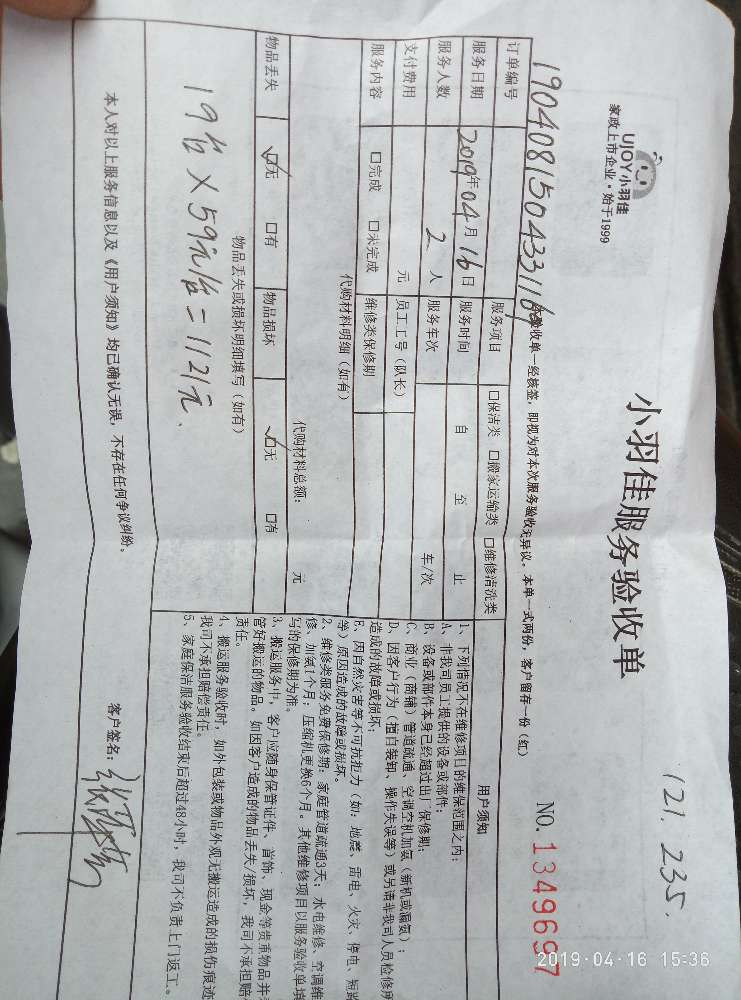 121. 235.
UJOY小羽佳
家政上市企业·始于1999
小羽佳服务验收单
NO. 1349697
验收单一经核签，即视为对本次服务验收无异议。本单一式两份，客户留存一份（红）
订单编号 190408150433116
服务项目 □保洁类 □搬家运输类 □维修清洗类
服务日期 2019年04月16日 服务时间 自 至 止
服务人数 2 人 服务车次 车/次
支付费用 元 员工工号（队长）
服务内容 □完成 □未完成 维修类保修期
代购材料明细（如有）
代购材料总额： 元
物品丢失 ☑无 □有 物品损坏 ☑无 □有
物品丢失或损坏明细填写（如有）
19台×59元/台=1121元.
用户须知
1、下列情况不在维修项目的维保范围之内：
A、非我司员工提供的设备或部件；
B、设备或部件本身已经超过出厂保修期；
C、商业（商铺）管道疏通、空调空机加氨（新机或漏氨）；
D、因客户行为（擅自装卸、操作失误等）或另请非我司人员检修所
造成的故障或损坏；
E、因自然灾害等不可抗拒力（如：地震、雷电、火灾、停电、短路
等）原因造成的故障或损坏。
2、维修类服务免费保修期：家庭管道疏通3天；水电维修、空调维
修、加氨1个月；压缩机更换6个月。其他维修项目以服务验收单填
写的保修期为准。
3、搬运服务中，客户应随身保管证件、首饰、现金等贵重物品并
管好搬运的物品。如因客户造成的物品丢失/损坏，我司不承担赔
责任。
4、搬运服务验收时，如外包装或物品外观无搬运造成的损伤痕迹
我司不承担赔偿责任。
5、家庭保洁服务验收结束后超过48小时，我司不负责上门返工。
本人对以上服务信息以及《用户须知》均已确认无误，不存在任何争议纠纷。
客户签名：
2019-04-16 15:36